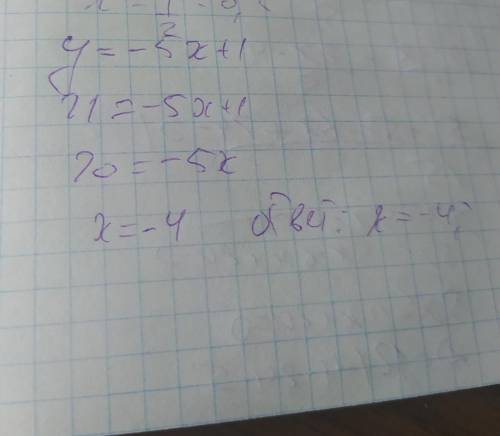 y = -5x+1
21 = -5x+1
20 = -5x
x = -4 Ответ: x = -4;